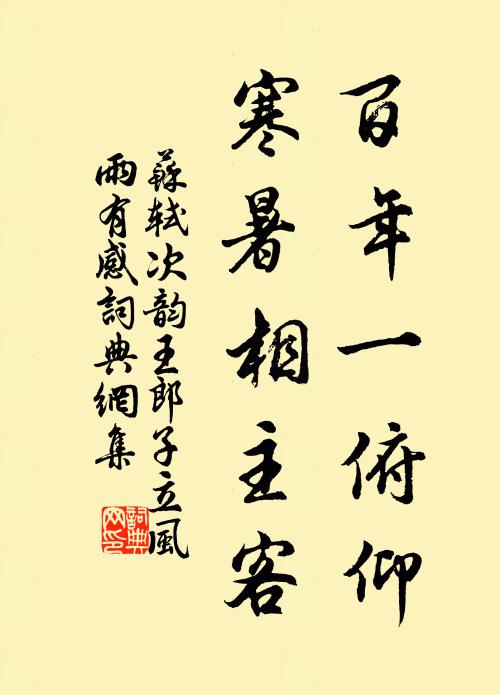 百年一俯仰
寒暑相主客
蘇軾次韵王郎子立風
雨有感詞典網集
詞典
网印